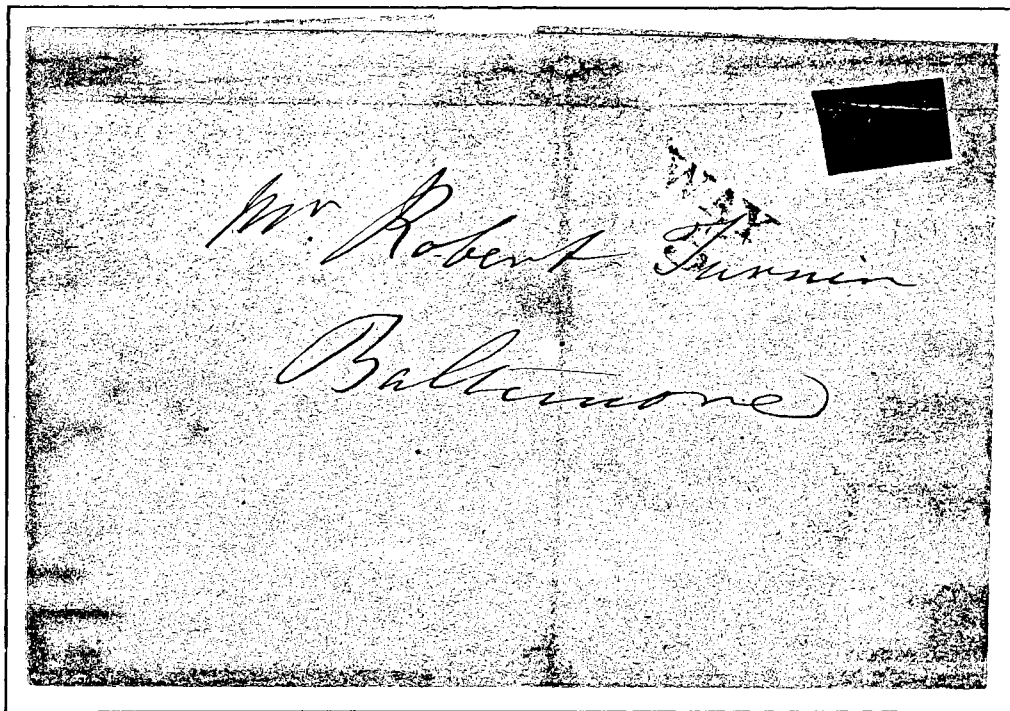 Mr. Robert Turnin
Baltimore